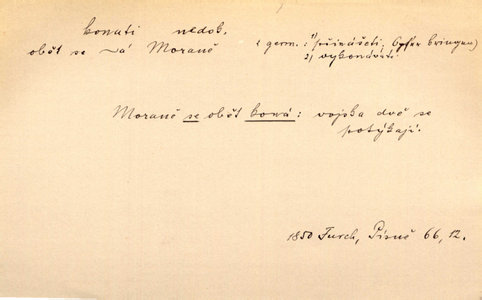 konati nedok.
oběť se ~á Moraně ( germ.: 1) přinášeti, Opfer bringen)
2) vykonávati
Moraně se oběť koná: vojska dvě se
potýkají.
1850 Furch, Písně 66, 12.